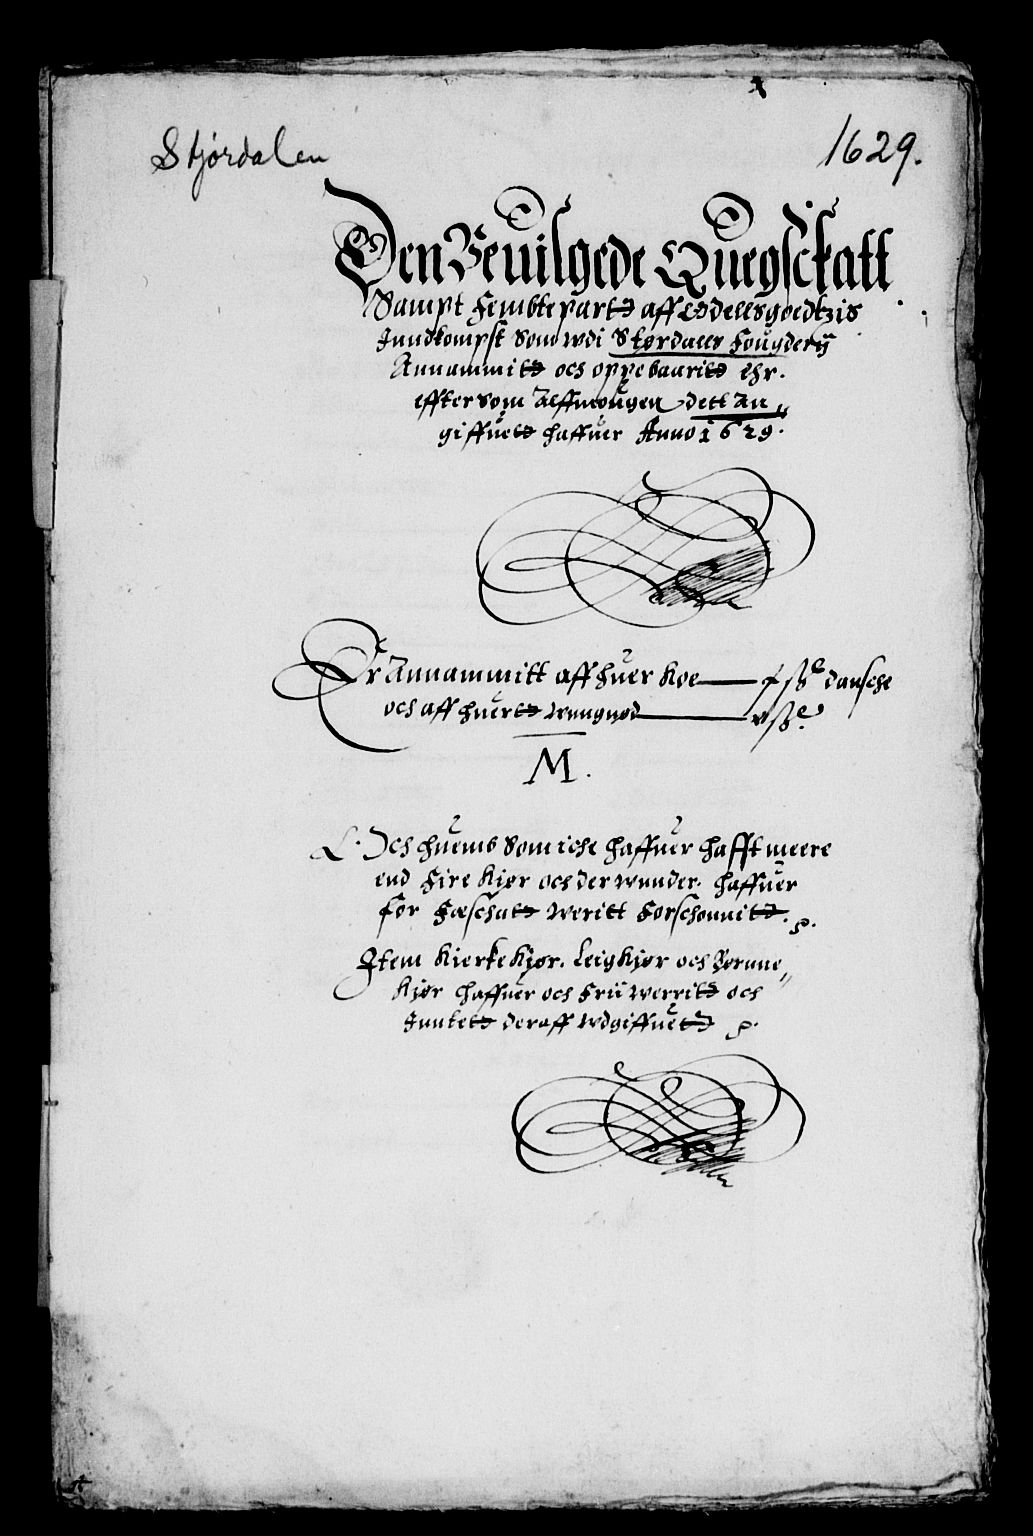 Stjørdalen
1629.
Den Beuilgede Quegsckatt
Sampt Fembte partt aff Odellsgoedtzis
Inndkompst Som wdi Størdalls Fougderÿ
Annammitt och oppebaaritt ehr.
effter som Alffmougen dett An„
giffuett haffuer Anno 1629.
Er Annammitt aff huer Koe ß danske
och aff huertt wnngnød ß
M.
Och huemb Som iche haffuer hafft meere
end Fire Kjør och der wnnder. haffuer
for Fæschatt weritt Forschonnitt.
Item Kierke Kjør. Leig Kjør och Børnne„
Kjør haffuer och Frii werritt och
Inntett deraff wdgiffuett